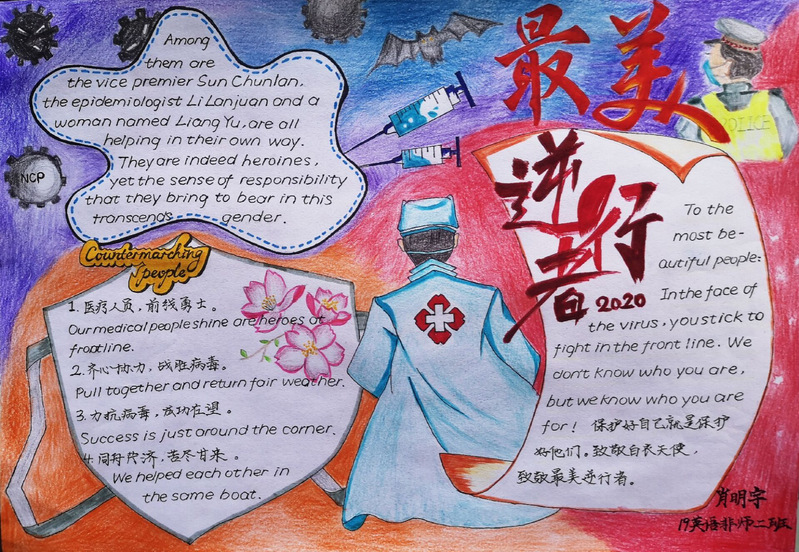 最美
逆行者
2020
POLICE
NCP
Among
them are
the vice premier Sun Chunlan,
the epidemiologist Li Lanjuan and a
woman named Liang Yu, are all
helping in their own way.
They are indeed heroines,
yet the sense of responsibility
that they bring to bear in this
transcends gender.
Countermarching
people
1. 医疗人员，前线勇士。
Our medical people shine are heroes at
frontline.
2. 齐心协力，战胜病毒。
Pull together and return fair weather.
3. 力抗病毒，成功在。
Success is just around the corner.
4. 同舟共济，苦尽甘来。
We helped each other in
the same boat.
To the
most be-
autiful people:
In the face of
the virus, you stick to
fight in the front line. We
don't know who you are,
but we know who you are
for! 保护好自己就是保护
好他们。致敬白衣天使，
致敬最美逆行者。
肖明宇
19英语非师二班